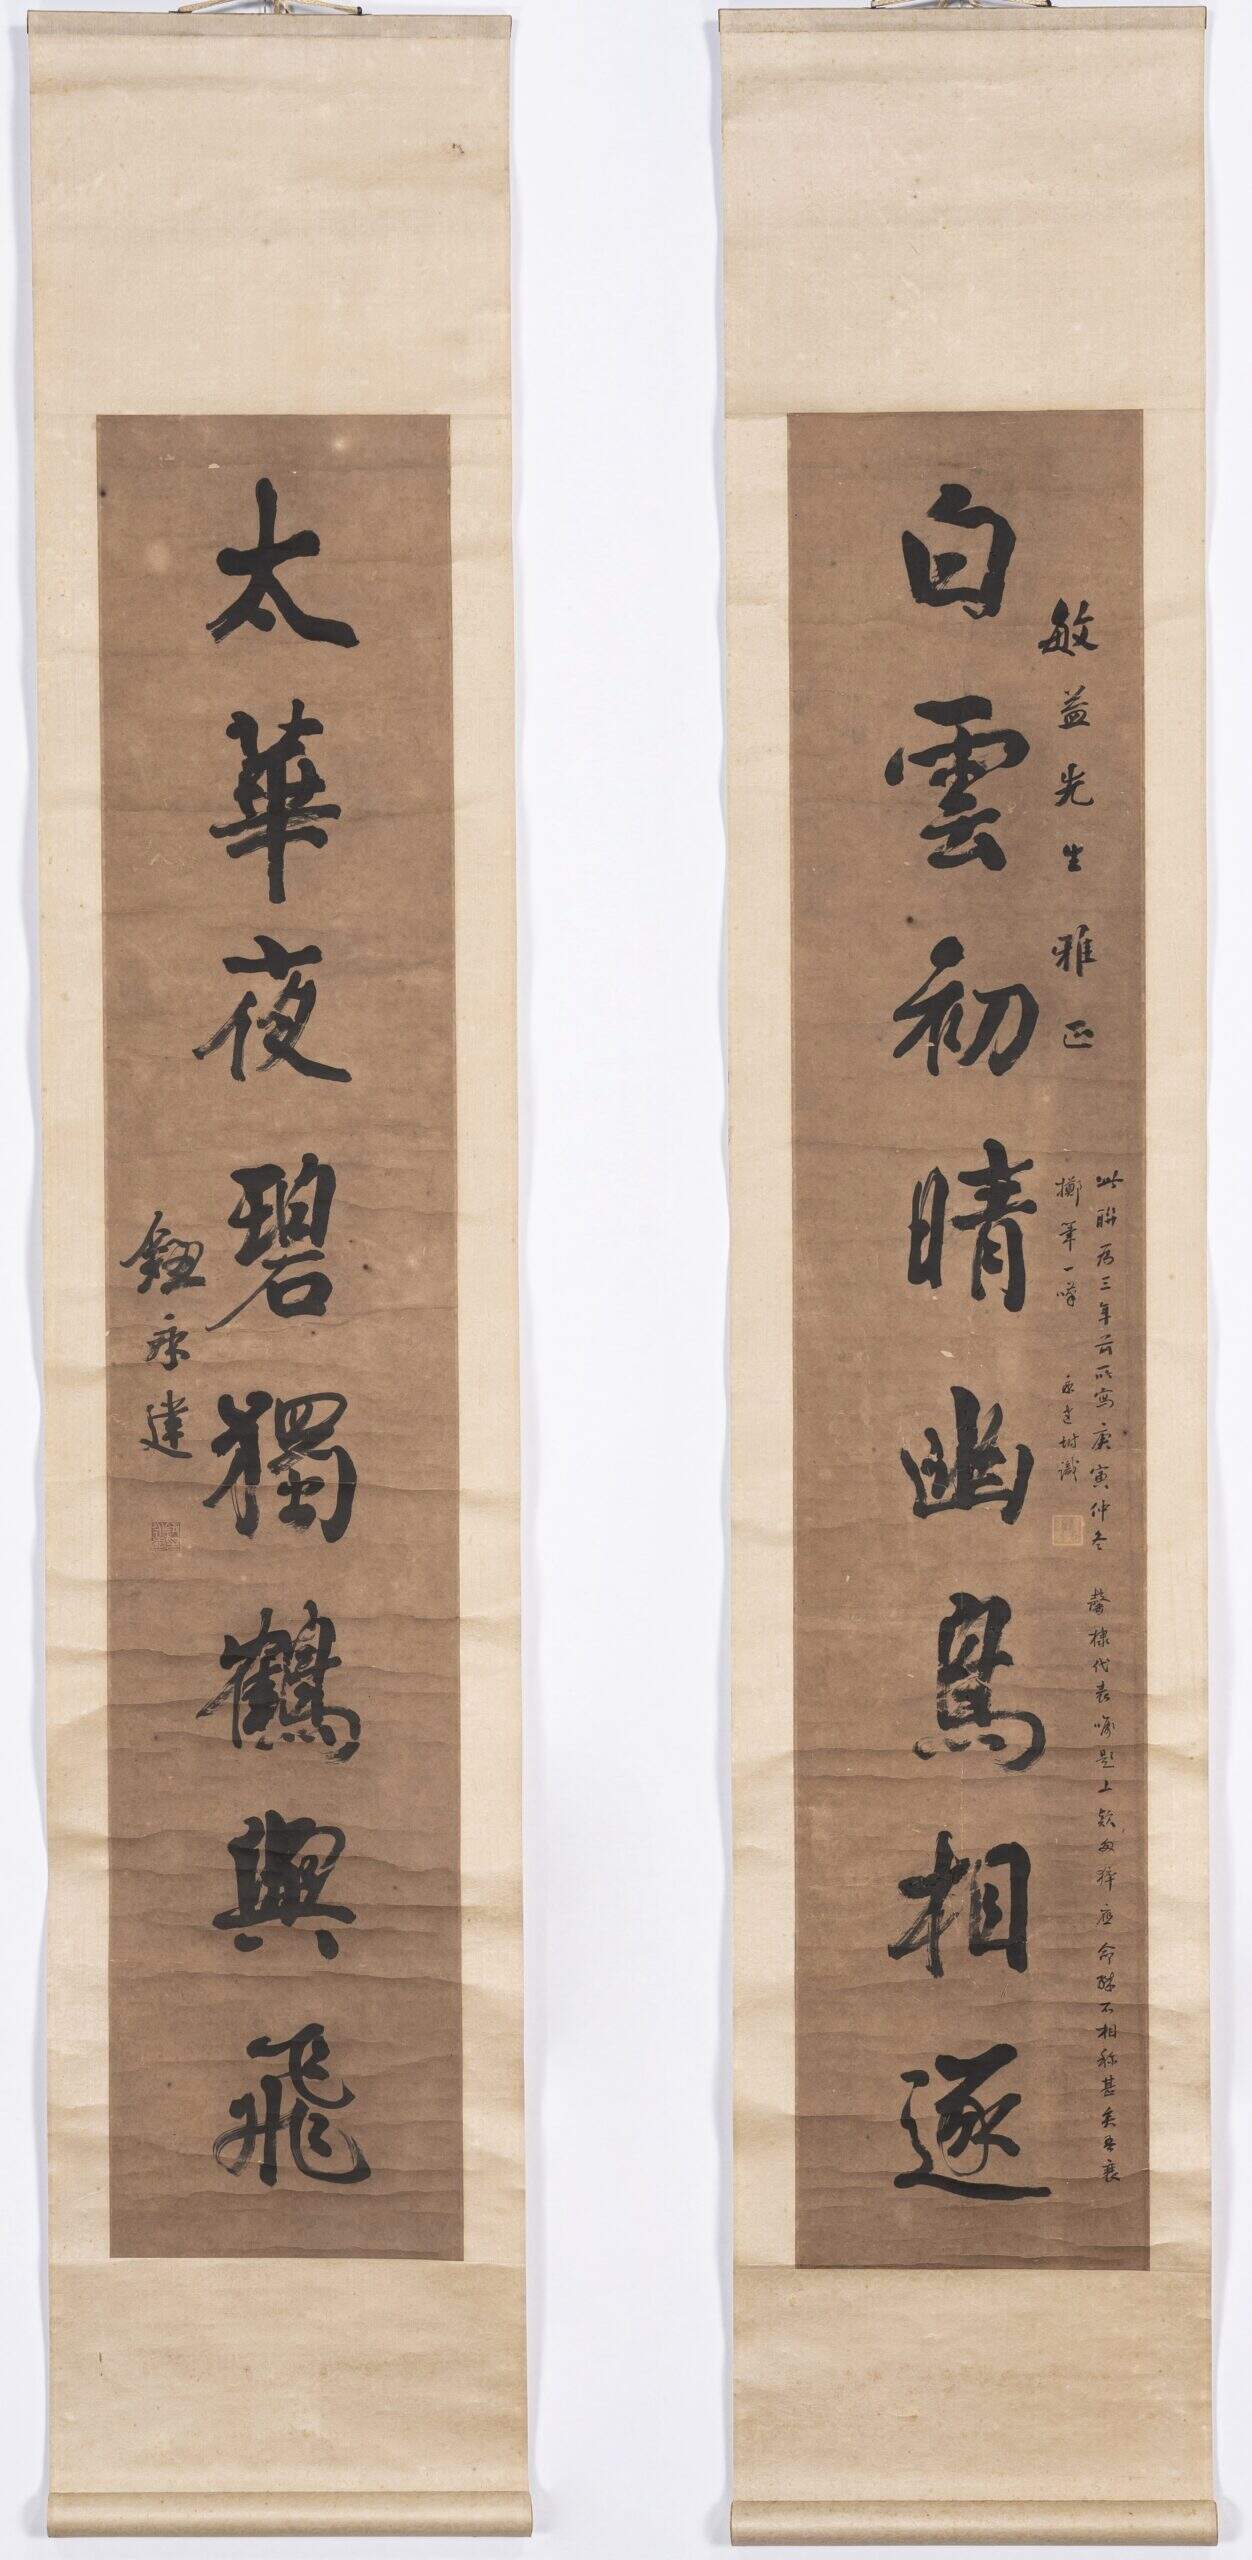 白雲初晴幽鳥相逐
敏益先生雅正
此聯為三年前所寫庚寅仲冬 馨棣代表囑題上款匆猝應命殊不相称甚矣吾衰
擲筆一嘆 永建坿識
太華夜碧獨鶴與飛
鈕永建